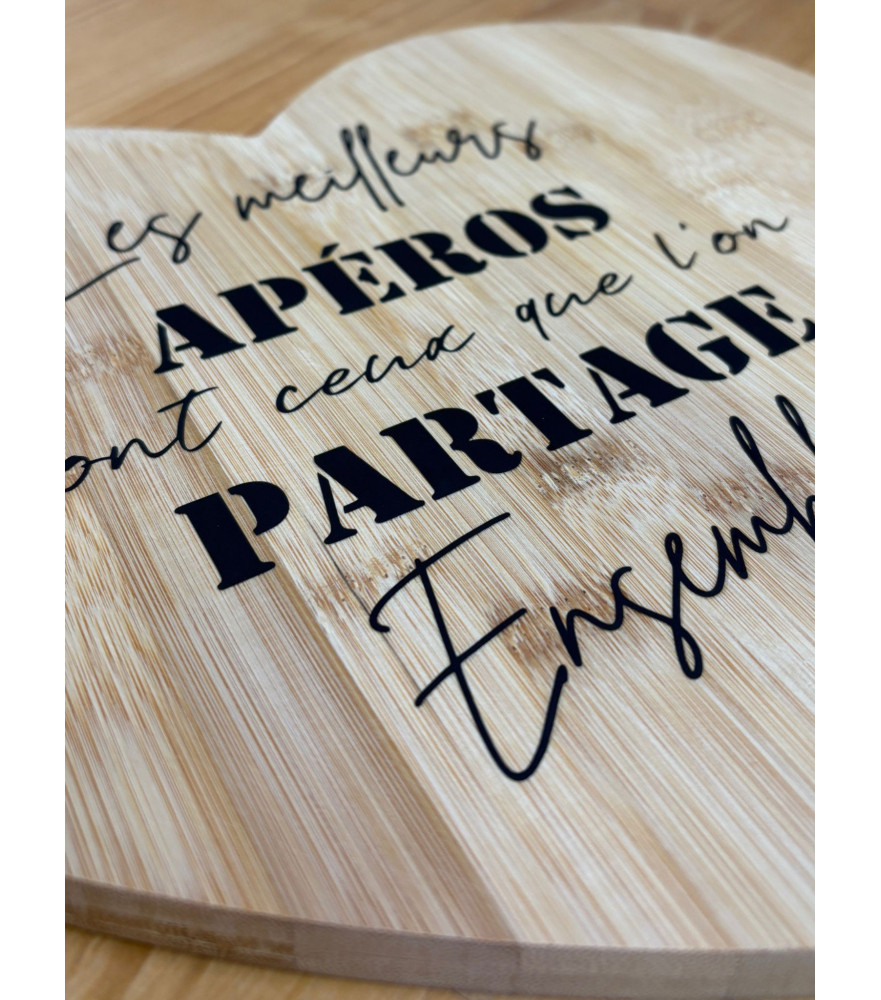 Les meilleurs
APÉROS
sont ceux que l'on
PARTAGE
Ensemble